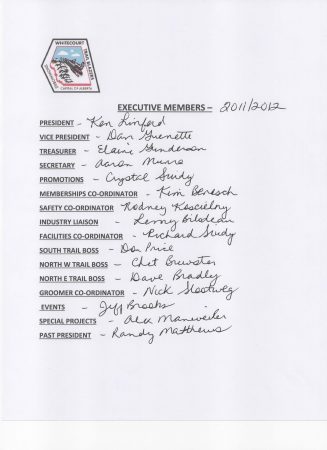 WHITECOURT
TRAIL BLAZERS
CAPITAL OF ALBERTA
EXECUTIVE MEMBERS – 2011/2012
PRESIDENT - Ken Linford
VICE PRESIDENT - Dan Guenette
TREASURER - Elaine Gunderson
SECRETARY - Aaron Munro
PROMOTIONS - Crystal Sindy
MEMBERSHIPS CO-ORDINATOR - Kim Benesch
SAFETY CO-ORDINATOR Rodney Koscielny
INDUSTRY LIAISON - Lenny Bilodeau
FACILITIES CO-ORDINATOR - Richard Sindy
SOUTH TRAIL BOSS - Don Price
NORTH W TRAIL BOSS - Chet Brewster
NORTH E TRAIL BOSS - Dave Bradley
GROOMER CO-ORDINATOR - Nick Slootweg
EVENTS - Jeff Brooks
SPECIAL PROJECTS - Alex Manweiler
PAST PRESIDENT - Randy Matthews